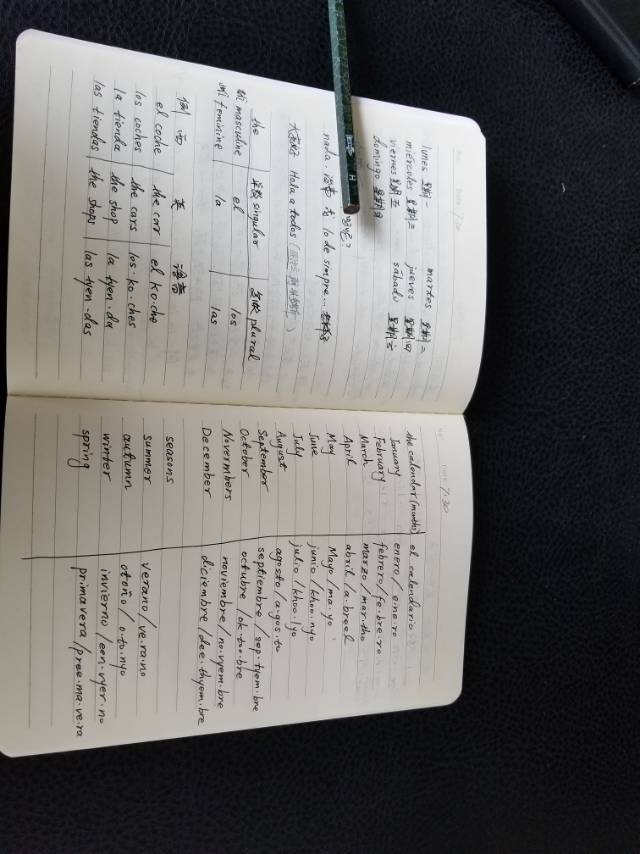 lunes 星期一 martes 星期二
miércoles 星期三 jueves 星期四
viernes 星期五 sábado 星期六
domingo 星期日
nada. lo de simpre...
大家好 Hola a todos
the 单数 singular 复数 plural
阳 masculine el los
阴 feminine la las
例 西 英 语音
el coche the car el ko.che
los coches the cars los.ko.ches
la tienda the shop la tyen.da
las tiendas the shops las tyen.das
7.30
the calendar (months) el calendario
January enero / eine.ro
February febrero / fe.bre.ro
March marzo / mar.tho
April abril / a.breel
May Mayo / ma.yo
June junio / khoo.nyo
July julio / khoo.lyo
August agosto / a.gos.to
September septiembre / sep.tyem.bre
October octubre / ok.too.bre
Novermbers noviembre / no.vyem.bre
December diciembre / dee.thyem.bre
seasons
summer verano / ve.ra.no
autumn otoño / o.to.nyo
winter invierno / een.vyer.no
spring primavera / pree.ma.ve.ra